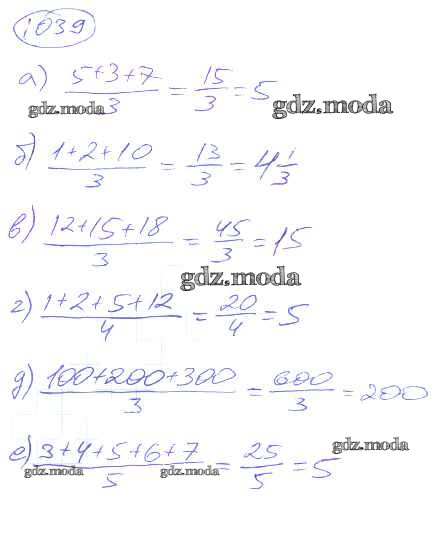 1039
а) (5+3+7)/3 = 15/3 = 5
gdz.moda
gdz.moda
б) (1+2+10)/3 = 13/3 = 4 1/3
в) (12+15+18)/3 = 45/3 = 15
gdz.moda
г) (1+2+5+12)/4 = 20/4 = 5
д) (100+200+300)/3 = 600/3 = 200
е) (3+4+5+6+7)/5 = 25/5 = 5
gdz.moda
gdz.moda
gdz.moda